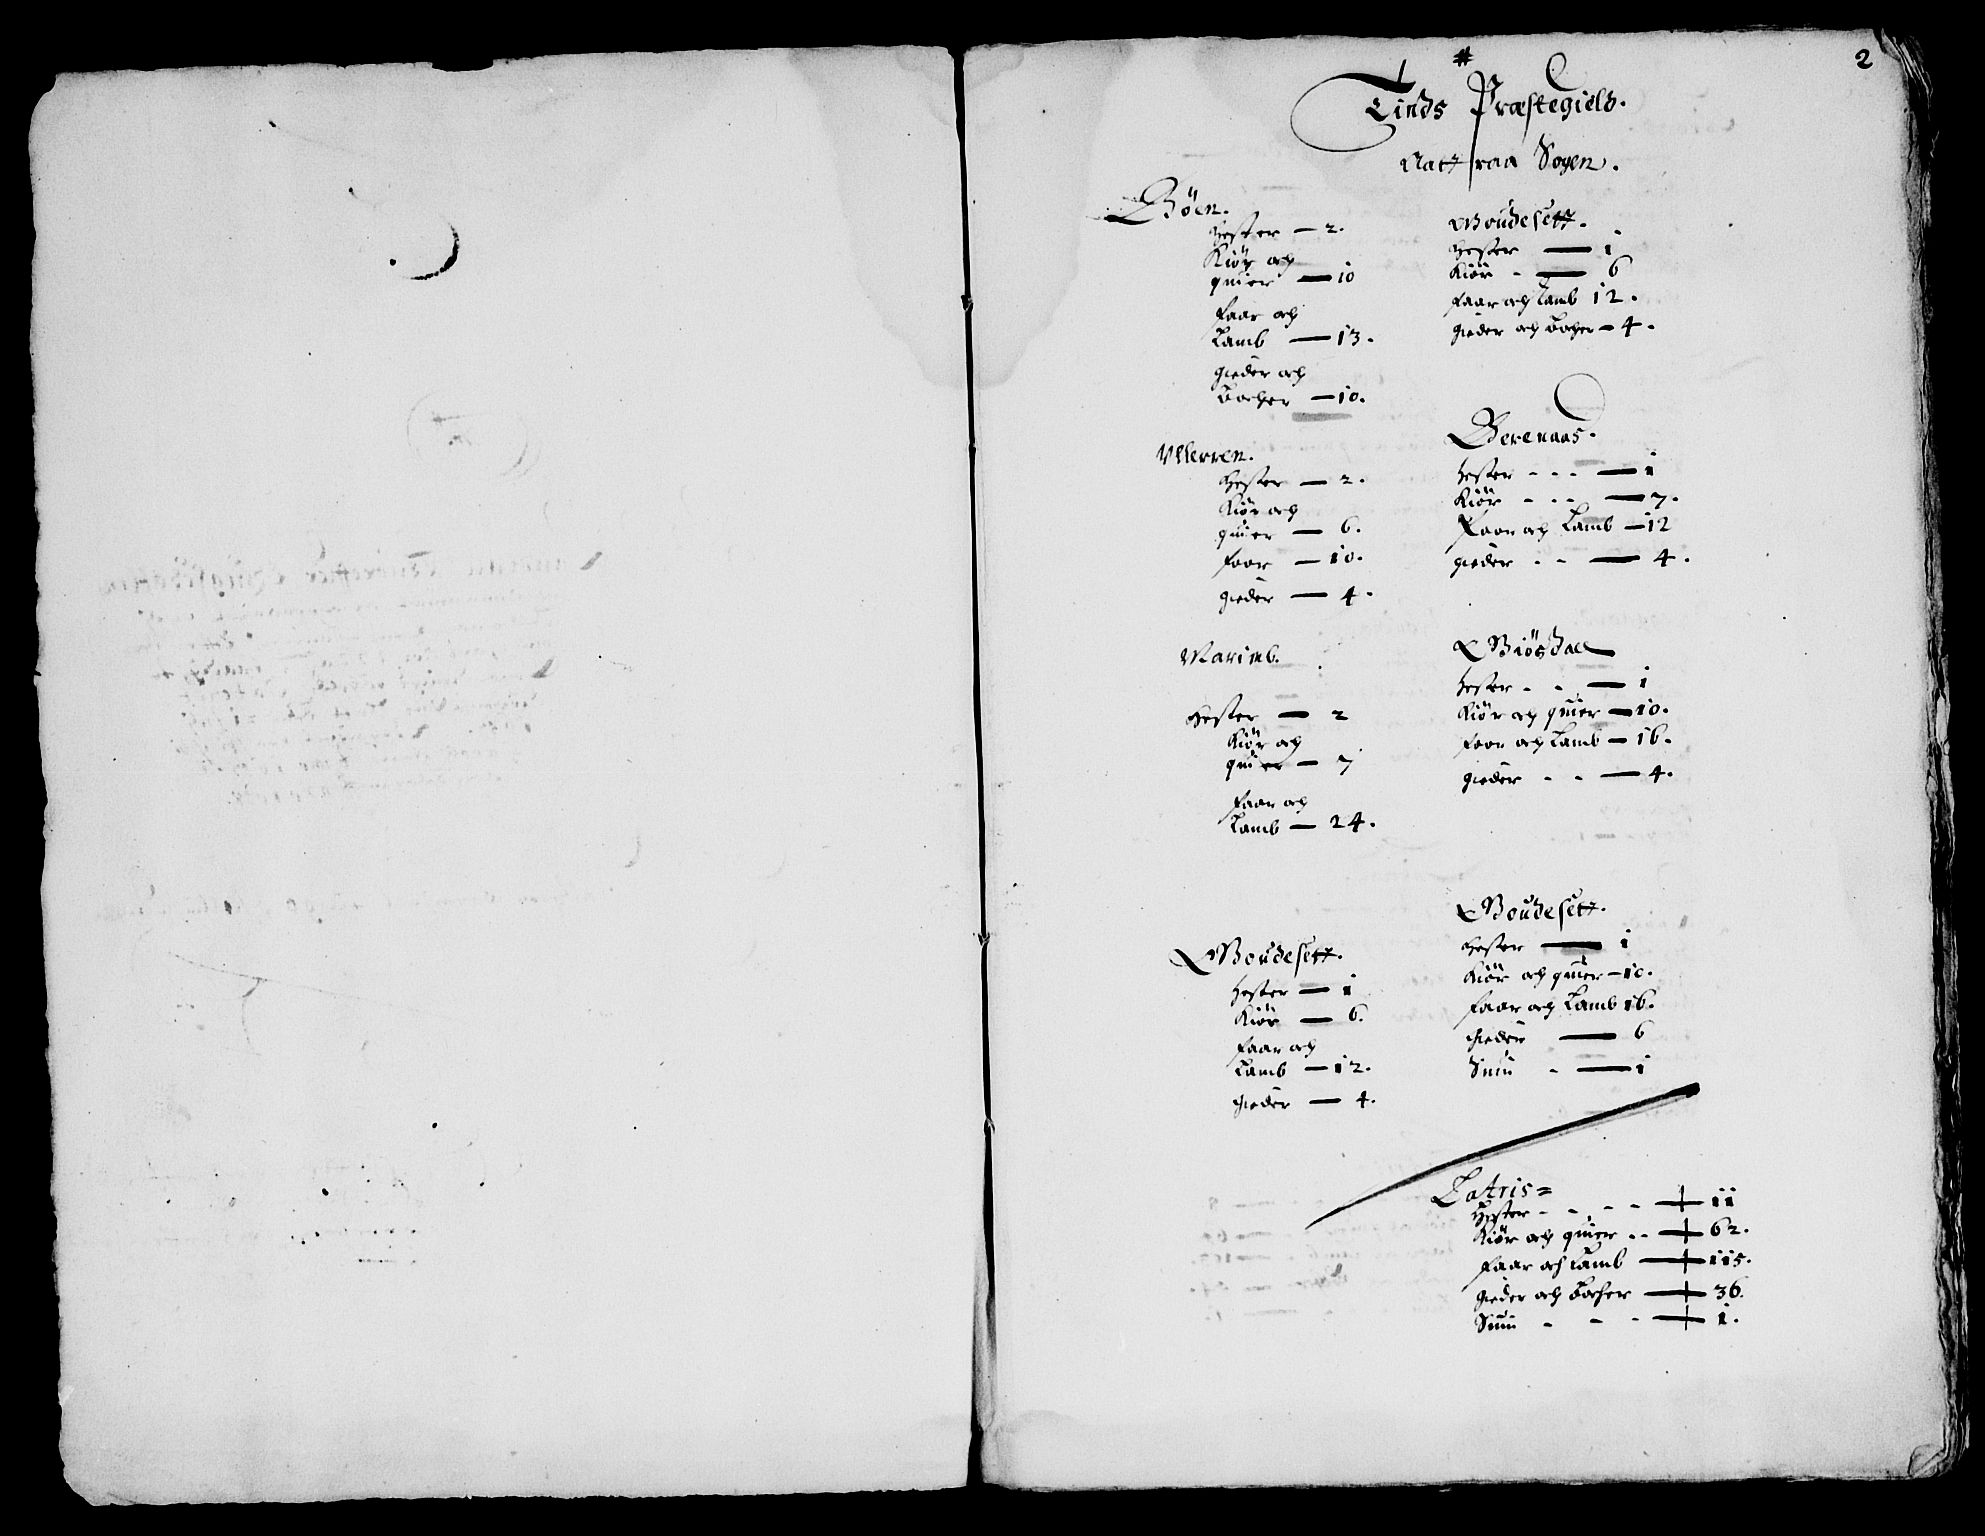 2
Tinds Præstegield.
Attraa Sogen.
Böen.
Hester — 2.
Kiör och
quier — 10
Faar och
Lamb — 13.
gieder och
Bocher — 10.
Ullerren.
Hester — 2.
Kiör och
quier — 6.
Faar — 10.
gieder — 4.
Marimb.
Hester — 2
Kiör och
quier — 7
Faar och
Lamb — 24.
Boudesett.
Hester — 1
Kiör — 6.
Faar och
Lamb — 12.
Gieder — 4.
Boudesett.
Hester — 1
Kiör - — 6
Faar och Lamb 12.
gieder och Bocher — 4.
Berenaas.
Hester - - - — 1
Kiör - - - — 7.
Faar och Lamb — 12
gieder - - — 4.
Biösdael
Hester - - — 1
Kiör och quier — 10.
Faar och Lamb — 16.
gieder - - — 4.
Boudesett.
Hester — 1
Kiör och quier — 10.
Faar och Lamb 16.
Gieder — 6
Suin - — 1
Latris=
Hester - - - - — 11
Kiör och quier - - — 62.
Faar och Lamb — 115.
gieder och Bocher — 36.
Suin - - - — 1.